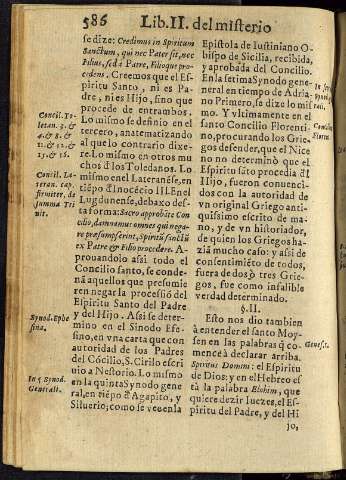 586
Lib. II. del misterio
se dize: Credimus in Spiritum
Sanctum, qui nec Pater sit, nec
Filius, sed à Patre, Filioque pro
cedens. Creemos que el Es-
piritu Santo, ni es Pa-
dre, ni es Hijo, sino que
procede de entrambos.
Lo mismo se definio en el
tercero, anatematizando
al que lo contrario dixe-
re. Lo mismo en otros mu
chos d̃ los Toledanos. Lo
mismo en el Lateranẽse, en
tiẽpo d̃ Inocẽcio III. En el
Lugdunense, debaxo des-
ta forma: Sacro approbãte Con
cilio, damnamus omnes qui nega-
re præsumpserint, Spiritũ sanctũ
ex Patre & Filio procedere. A-
prouandolo assi todo el
Concilio santo, se conde-
nã aquellos que presumie
ren negar la processiõ del
Espiritu Santo del Padre
y del Hijo. Assi se deter-
mino en el Sinodo Efe-
sino, en vna carta que con
autoridad de los Padres
del Cõcilio, S. Cirilo escri
uio a Nestorio. Lo mismo
en la quinta Synodo gene
ral, en tiẽpo d̃ Agapito, y
Siluerio; como se vee en la
Concil. To-
letan. 3. &
4. & 8. &
11. & 12. &
13. & 16.
Concil. La-
teran. cap.
firmiter, de
summa Tri
nit.
Synod. Ephe
sina.
In 5 Synod.
Generali.
Epistola de Iustiniano O-
bispo de Sicilia, recibida,
y aprobada del Concilio.
En la setima Synodo gene
ral en tiempo de Adria-
no Primero, se dize lo mis
mo. Y vltimamente en el
santo Concilio Florenti-
no, procurando los Grie-
gos defender, que el Nice
no no determinò que el
Espiritu sãto procedia d̃l
Hijo, fueron conuenci-
dos con la autoridad de
vn original griego anti-
quissimo escrito de ma-
no, y de vn historiador,
de quien los Griegos ha-
ziã mucho caso: y assi de
consentimiẽto de todos,
fuera de dos ò tres Grie-
gos, fue como infalible
verdad determinado.
§. II.
Esto nos dio tambien
à entender el santo Moy-
sen en las palabras q̃ co-
mence à declarar arriba.
Spiritus Domini: el Espiritu
de Dios: y en el Hebreo es
tà la palabra Elohim, que
quiere dezir Iuezes, el Es-
piritu del Padre, y del Hi
Genes. 1.
jo,